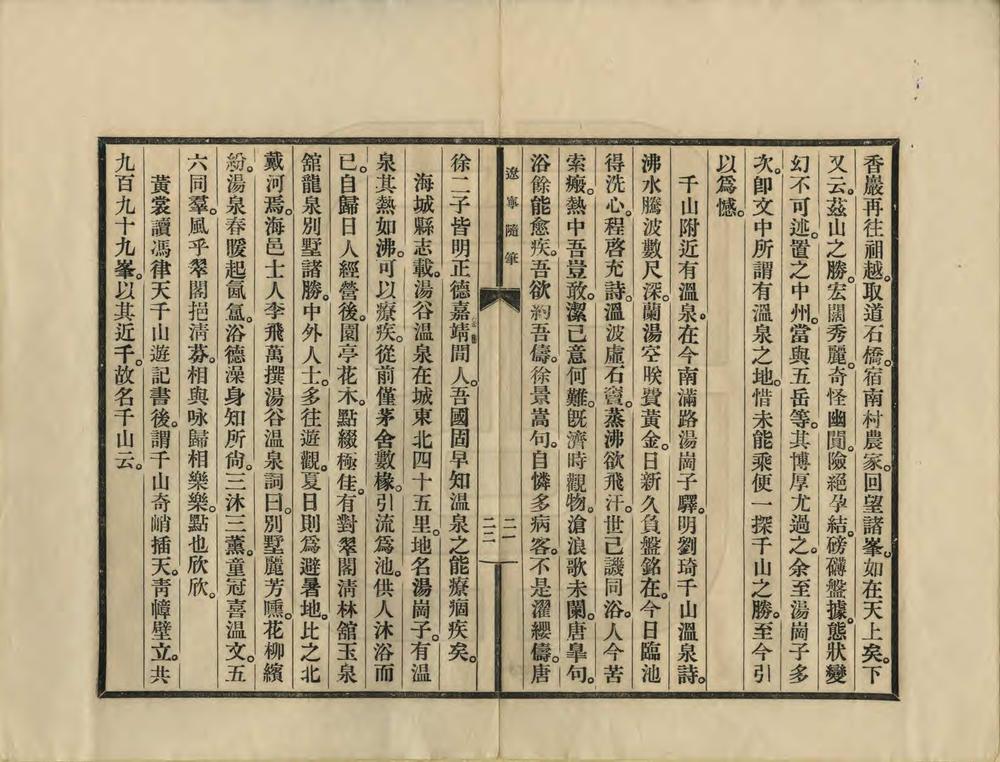 香巖再往祖越。取道石橋。宿南村農家。回望諸峯。如在天上矣。下
又云。茲山之勝。宏闊秀麗。奇怪幽閴。險絕孕結。磅礴盤據。態狀變
幻不可述。置之中州。當與五岳等。其博厚尤過之。余至湯崗子多
次。卽文中所謂有溫泉之地。惜未能乘便一探千山之勝。至今引
以爲憾。
千山附近有溫泉。在今南滿路湯崗子驛。明劉琦千山溫泉詩。
沸水騰波數尺深。蘭湯空唉費黃金。日新久負盤銘在。今日臨池
得洗心。程啓充詩。溫波虛石竇。蒸沸欲飛汗。世已譏同浴。人今苦
索瘢。熱中吾豈敢。潔已意何難。旣濟時觀物。滄浪歌未闌。唐皐句。
浴餘能愈疾。吾欲約吾儔。徐景嵩句。自憐多病客。不是濯纓儔。唐
遼寧隨筆
二一
二二
徐二子皆明正德嘉靖間人。吾國固早知溫泉之能療痼疾矣。
海城縣志載。湯谷溫泉在城東北四十五里。地名湯崗子。有溫
泉其熱如沸。可以療疾。從前僅茅舍數椽。引流爲池。供人沐浴而
已。自歸日人經營後。園亭花木。點綴極佳。有對翠閣淸林舘玉泉
舘龍泉別墅諸勝。中外人士。多往遊觀。夏日則爲避暑地。比之北
戴河焉。海邑士人李飛萬撰湯谷溫泉詞曰。別墅麗芳嚑。花柳繽
紛。湯泉春暖起氤氳。浴德澡身知所尙。三沐三薰。童冠喜溫文。五
六同羣。風乎翠閣挹淸芬。相與咏歸相樂樂。點也欣欣。
黃裳讀馮律天千山遊記書後。謂千山奇峭插天。靑幛壁立。共
九百九十九峯。以其近千。故名千山云。